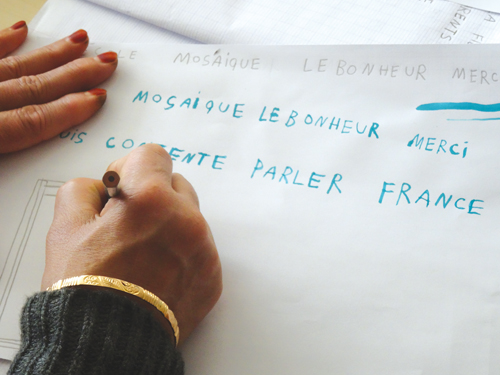 MOSAIQUE LE BONHEUR MERC
MOSAIQUE LE BONHEUR MERCI
UIS CONTENTE PARLER FRANCE